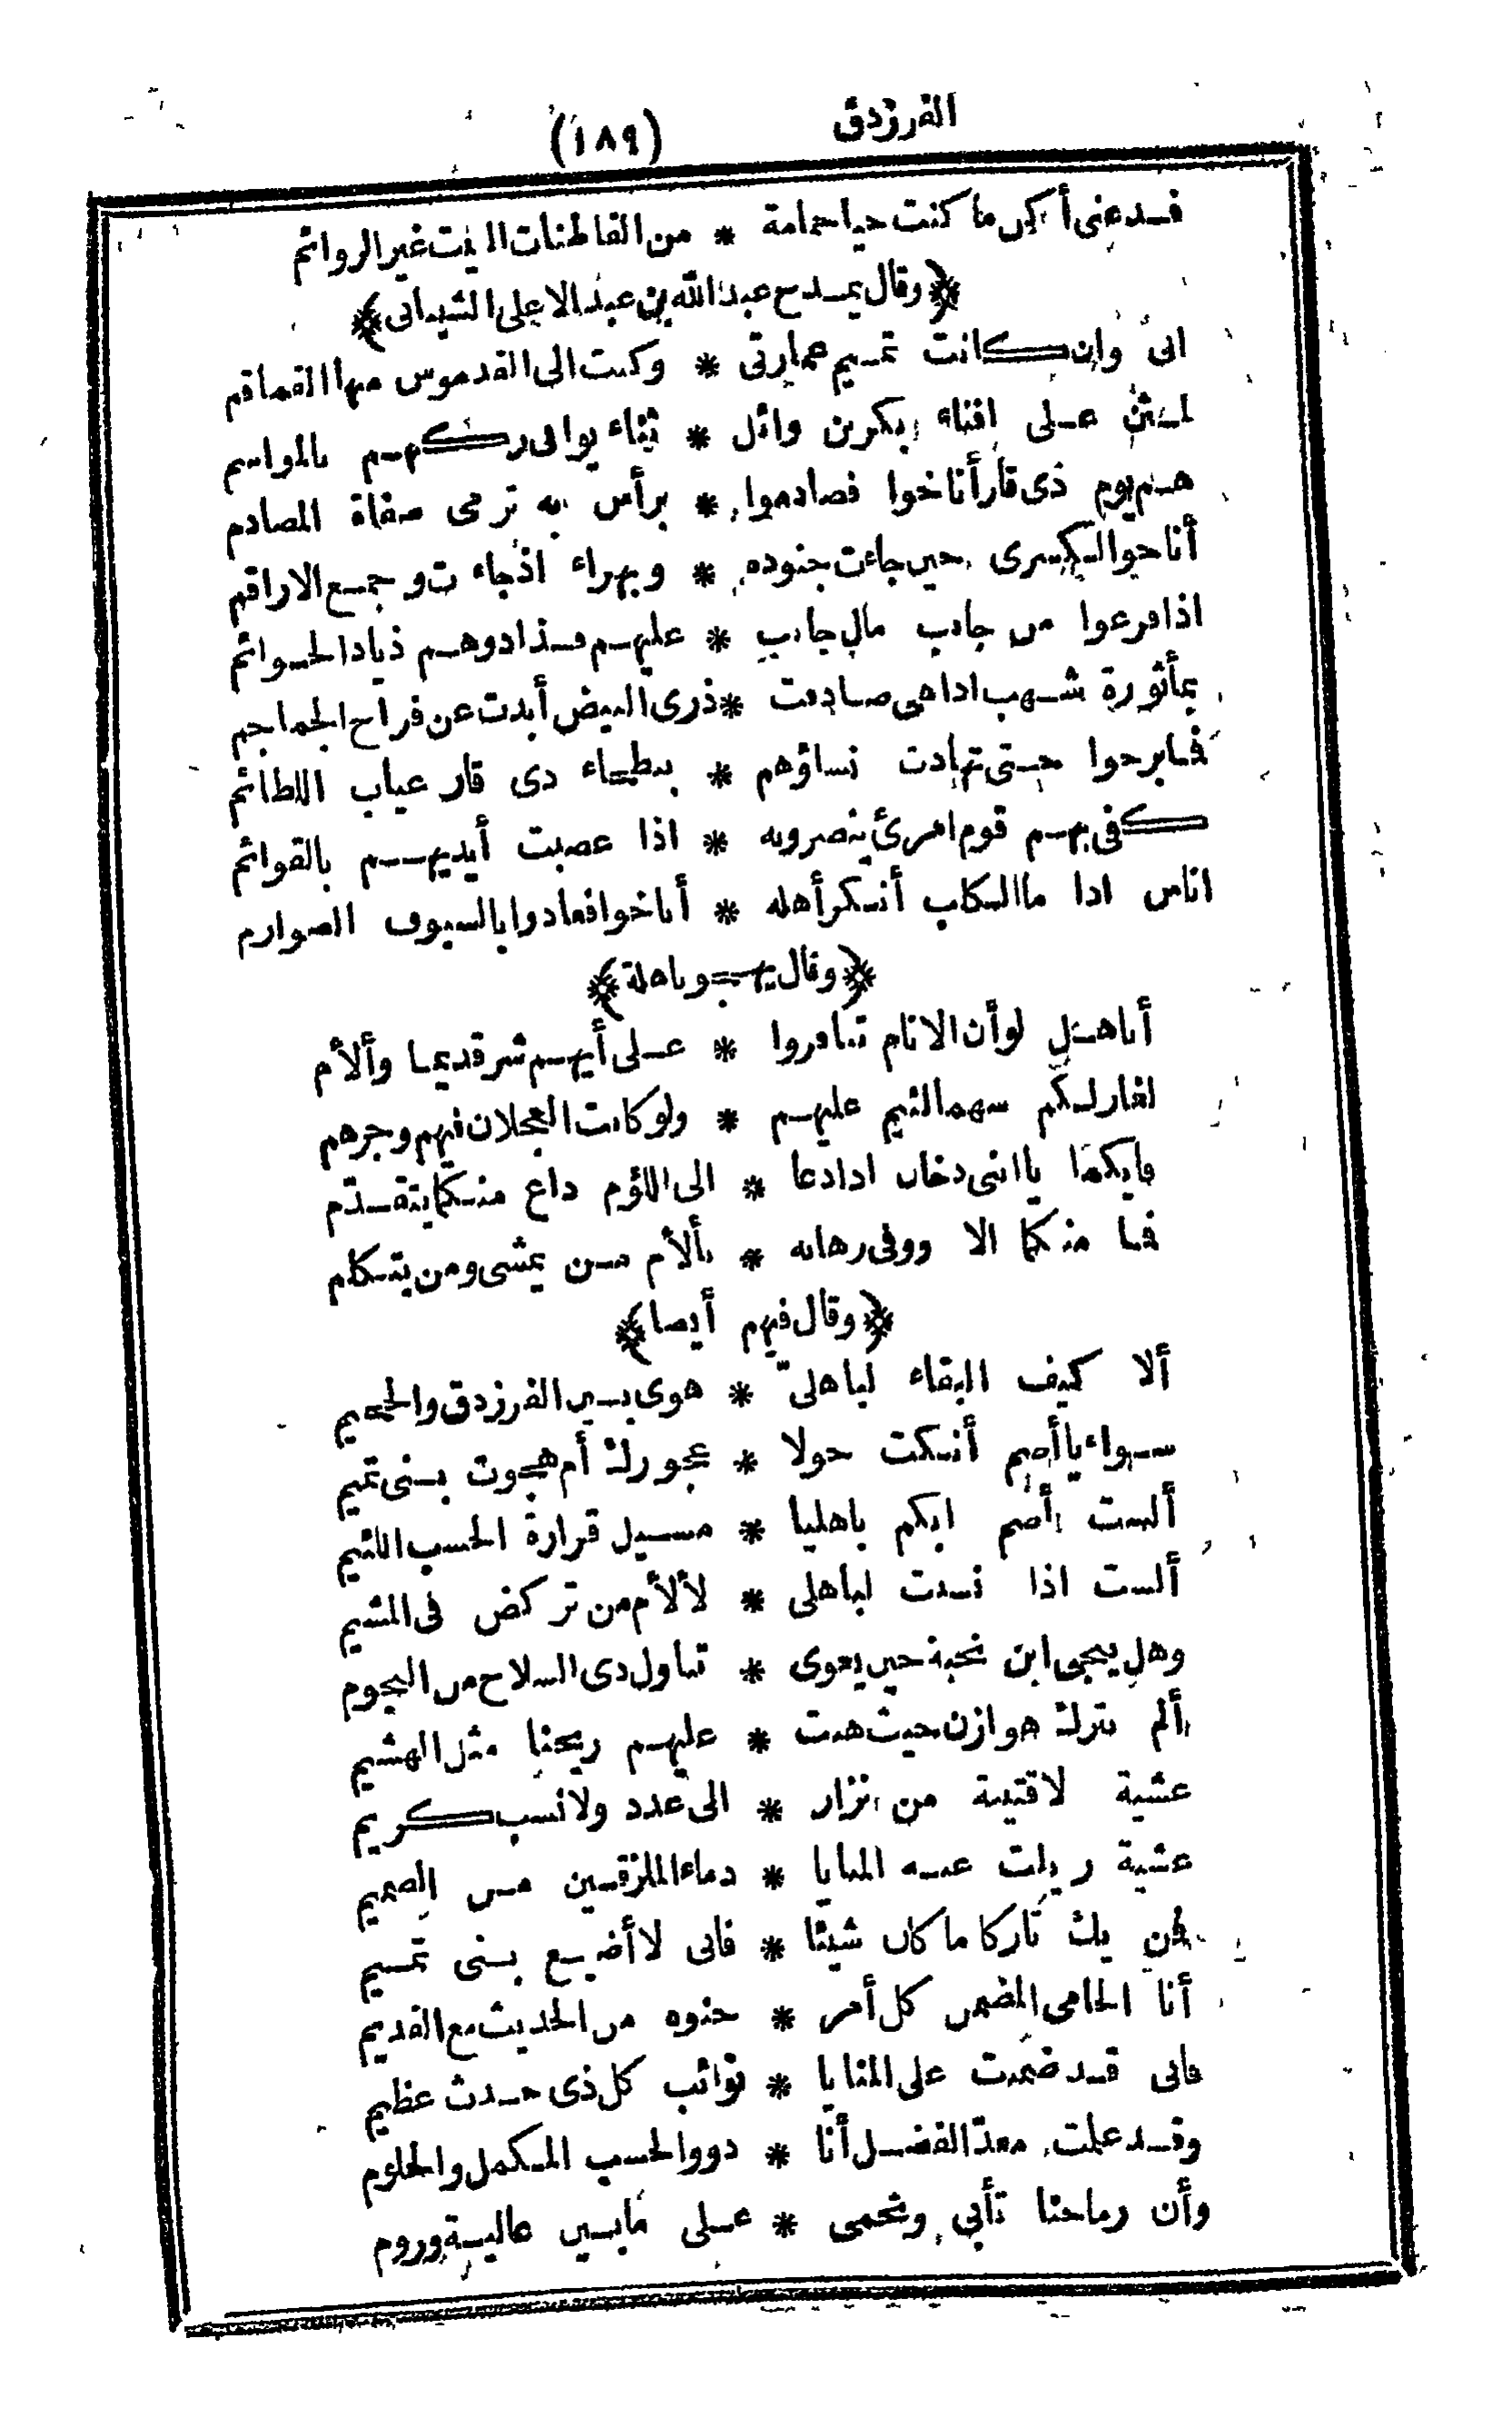 الفرزدق
(١٨٩)
فدعنى أكن ما كنت حيا حمامة * من القاطنات البيت غير الروائم
﴿وقال يمدح عبد الله بن عبد الاعلى الشيبانى﴾
انى وان كانت تميم عمارتى * وكنت الى القدموس منها القماقم
لمثن على افناء بكر بن وائل * ثناء يوافى ركبهم بالمواسم
هم يوم ذى قار أناخوا فصادموا * برأس به ترمى صفاة المصادم
أناخوا لكسرى حين جاءت جنوده * وبهراء اذ جاءت وجمع الاراقم
اذا فرغوا من جانب مال جانب * عليهم فذادوهم ذياد الحوائم
بمأثورة شهب اذا هى صادفت * ذرى البيض أبدت عن فراخ الجماجم
فما برحوا حتى تهادت نساؤهم * ببطحاء ذى قار عياب اللطائم
كفى بهم قوم امرئ ينصرونه * اذا عصبت أيديهم بالقوائم
اناس اذا ما الكلب أنكر أهله * أناخوا فعاذوا بالسيوف الصوارم
﴿وقال يهجو باهلة﴾
أباهل لو أن الانام تنافروا * على أيهم شر قديما وألأم
لفاز لكم سهما لئيم عليهم * ولو كانت العجلان فيهم وجرهم
فايكما يا ابنى دخان اذا دعا * الى اللؤم داع منكما يتقدّم
فما منكما الا ووفى رهانه * بألأم من يمشى ومن يتكلم
﴿وقال فيهم أيضا﴾
ألا كيف البقاء لباهلىّ * هوى بين الفرزدق والجحيم
سواء يا أصم أنكت حولا * عجوزك أم هجوت بنى تميم
ألست أصم ابكم باهليا * مسيل قرارة الحسب اللئيم
ألست اذا نسبت لباهلى * لألأم من تركض فى المشيم
وهل ينجى ابن نخبة حين يعوى * تناول ذى السلاح من النجوم
ألم نترك هوازن حيث هبت * عليهم ريحنا مثل الهشيم
عشية لا قتيبة من نزار * الى عدد ولا نسب كريم
عشية زيلت عنه المنايا * دماء الملزقين من الصميم
فمن يك تاركا ما كان شيئا * فانى لا أضيع بنى تميم
أنا الحامى المضمن كل أمر * جنوه من الحديث مع القديم
فانى قد ضمنت على المنايا * نوائب كل ذى حدث عظيم
وقد علمت معدّ الفضل أنا * ذوو الحسب المكمل والحلوم
وأن رماحنا تأبى وتحمى * على ما بين عالية وروم